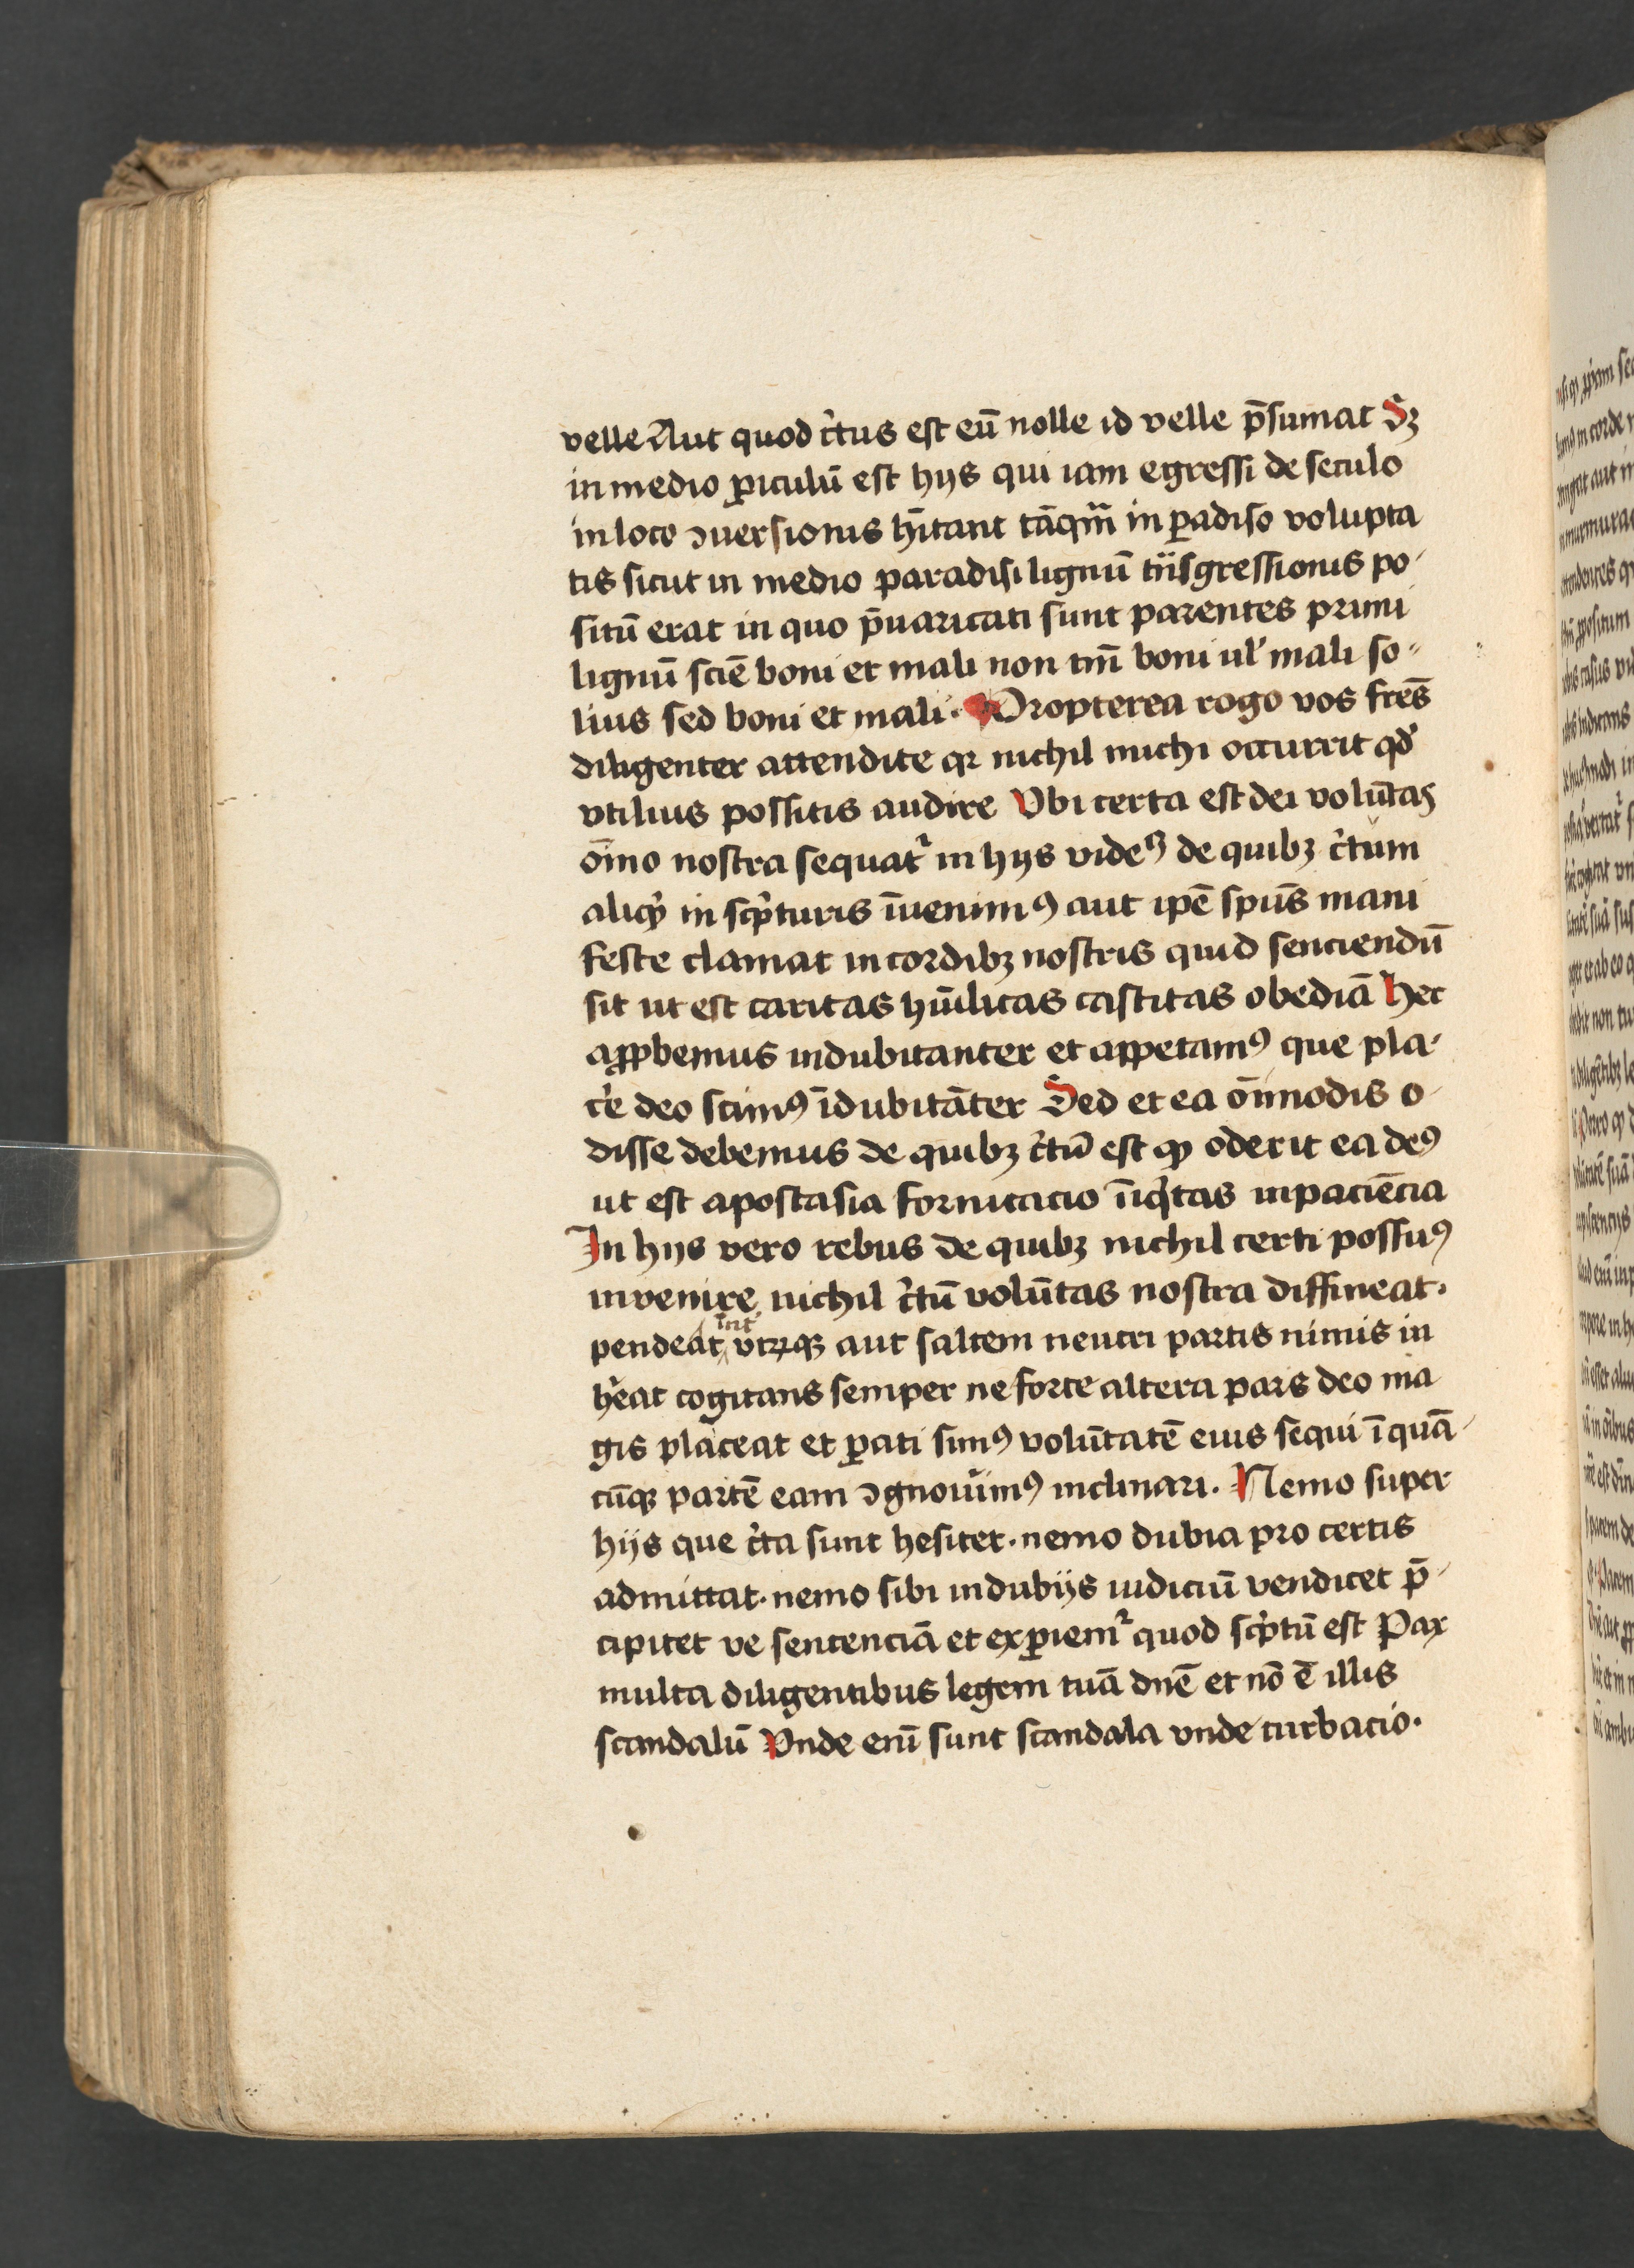 velle Aut quod c̓tus est eū nolle id velle p̄sumat Sꝫ
in medio ꝑiculū est hijs qui iam egressi de seculo
in loco ꝯuersionis hītant tāqm̄ in ꝑadiso volupta
tis sicut in medio paradisi lignū tn̄sgressionis po⸗
situ̅ erat in quo p̄uaricati sunt parentes primi
lignū scīe boni et mali non tm̄ boni ul̓ mali so⸗
lius sed boni et mali· Propterea rogo vos frēs
diligenter attendite qꝛ nichil michi occurrit qd̓
vtilius possitis audire Vbi certa est dei volūtas
oīno nostra sequat᷑ in hijs videꝫ de quibꝫ c̓tum
aliqͥd in scͥpturis īuenimꝰ aut ipē spūs mani
feste clamat in cordibꝫ nostris quid senciendū
sit ut est caritas hūilitas castitas obediā̅ Hec
aꝓpbemus indubitanter et appetamꝰ que pla⸗
c̓e deo scimꝰ īdubitāter Sed et ea oīmodis o⸗
disse debemus de quibꝫ c̓tū est qꝫ oderit ea deꝰ
ut est apostasia fornicacio īiqͥtas inpaciēcia
In hijs vero rebus de quibꝫ nichil certi possuꝰ
invenire nichil c̓tū volūtas nostra diffineat·
pendeat int̓ vtrꝜqꝫ aut saltem neutri partis nimis in
hēat cogitans semper ne forte altera pars deo ma
gis placeat et ꝑati simꝰ volūtatē eius sequi ī quā⸗
cūqꝫ partē eam ꝯgnoūimꝰ inclinari· Nemo super
hijs que c̓ta sunt hesitet· nemo dubia pro certis
admittat· nemo sibi in dubijs iudiciū vendicet p̄⸗
cipitet ve sentenciā et exꝑiem᷑ quod scͥptū est Pax
multa diligentibus legem tuā dnē et nō ē illis
scandalū Vnde eni̅ sunt scandala vnde turbacio·